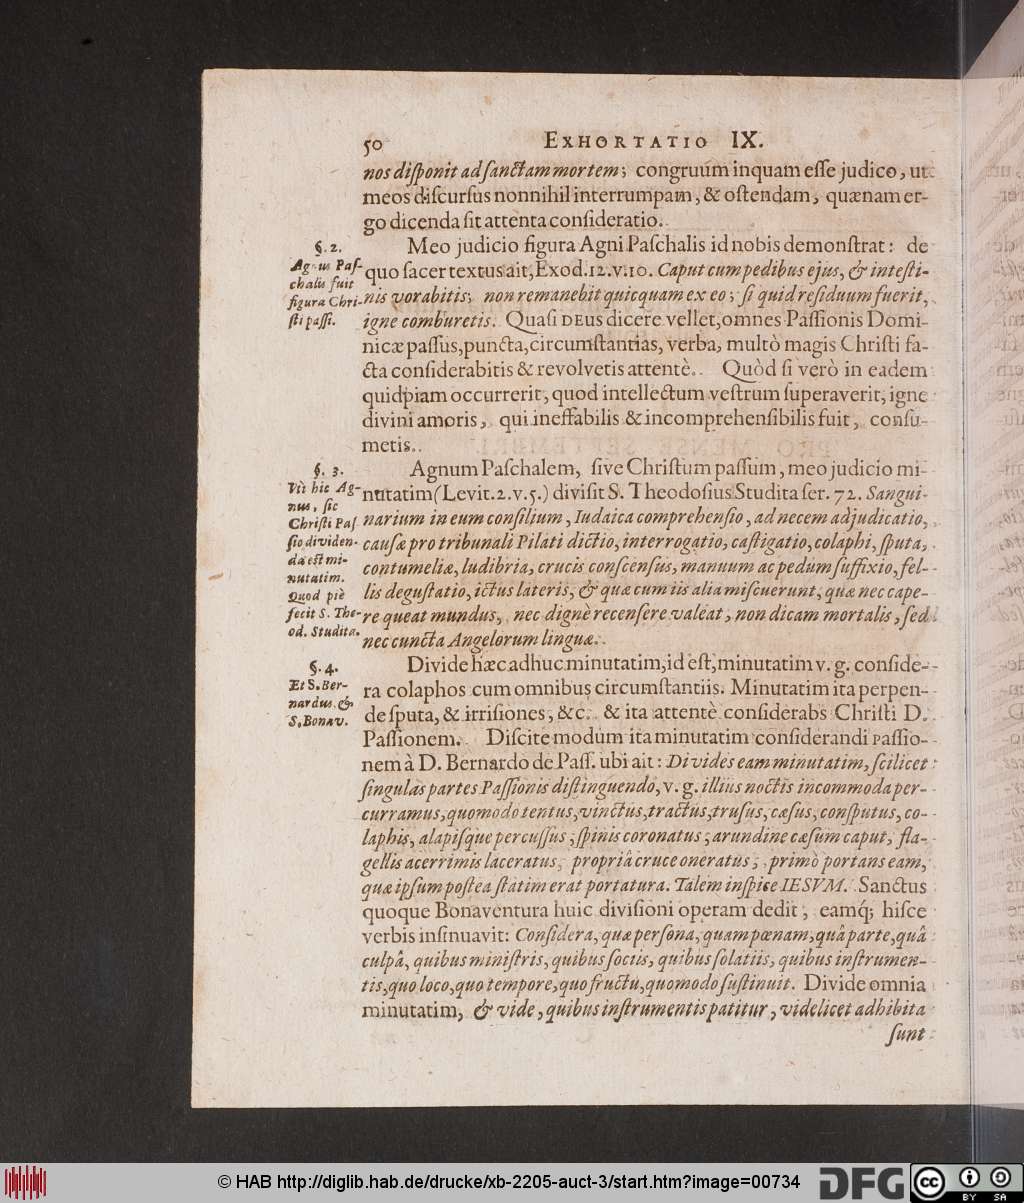 50 EXHORTATIO IX.
nos disponit ad sanctam mortem; congruum inquam esse judico, ut
meos discursus nonnihil interrumpam, & ostendam, quænam er-
go dicenda sit attenta consideratio.
§. 2.
Agnus Pas-
chalis fuit
figura Chri-
sti passi.
Meo judicio figura Agni Paschalis id nobis demonstrat: de
quo sacer textus ait, Exod. 12. v. 10. Caput cum pedibus ejus, & intesti-
nis vorabitis; non remanebit quicquam ex eo; si quid residuum fuerit,
igne comburetis. Quasi DEus dicere vellet, omnes Passionis Domi-
nicæ passus, puncta, circumstantias, verba, multò magis Christi fa-
cta considerabitis & revolvetis attentè. Quòd si verò in eadem
quidpiam occurrerit, quod intellectum vestrum superaverit, igne
divini amoris, qui ineffabilis & incomprehensibilis fuit, consu-
metis.
§. 3.
Vti hic Ag-
nus, sic
Christi Pas
sio dividen-
da est mi-
nutatim.
Quod piè
fecit S. The-
od. Studita.
Agnum Paschalem, sive Christum passum, meo judicio mi-
nutatim (Levit. 2. v. 5.) divisit S. Theodosius Studita ser. 72. Sangui-
narium in eum consilium, Iudaica comprehensio, ad necem adjudicatio,
causæ pro tribunali Pilati dictio, interrogatio, castigatio, colaphi, sputa,
contumeliæ, ludibria, crucis conscensus, manuum ac pedum suffixio, fel-
lis degustatio, ictus lateris, & quæ cum iis alia miscuerunt, quæ nec cape-
re queat mundus, nec dignè recensere valeat, non dicam mortalis, sed
nec cuncta Angelorum linguæ.
§. 4.
Et S. Ber-
nardus &
S. Bonav.
Divide hæc adhuc minutatim, id est, minutatim v. g. conside-
ra colaphos cum omnibus circumstantiis. Minutatim ita perpen-
de sputa, & irrisiones, &c. & ita attentè considerabs Christi D.
Passionem. Discite modum ita minutatim considerandi passio-
nem à D. Bernardo de Pass. ubi ait: Divides eam minutatim, scilicet
singulas partes Passionis distinguendo, v. g. illius noctis incommoda per-
curramus, quomodo tentus, vinctus, tractus, trusus, cæsus, consputus, co-
laphis, alapisque percussus, spinis coronatus; arundine cæsum caput, fla-
gellis acerrimis laceratus, propriâ cruce oneratus; primò portans eam,
quæ ipsum postea statim erat portatura. Talem inspice IESVM. Sanctus
quoque Bonaventura huic divisioni operam dedit, eamq́; hisce
verbis insinuavit: Considera, quæ persona, quam pœnam, quâ parte, quâ
culpâ, quibus ministris, quibus sociis, quibus solatiis, quibus instrumen-
tis, quo loco, quo tempore, quo fructu, quomodo sustinuit. Divide omnia
minutatim, & vide, quibus instrumentis patitur, videlicet adhibita
sunt
© HAB http://diglib.hab.de/drucke/xb-2205-auct-3/start.htm?image=00734
DFG
cc
BY SA